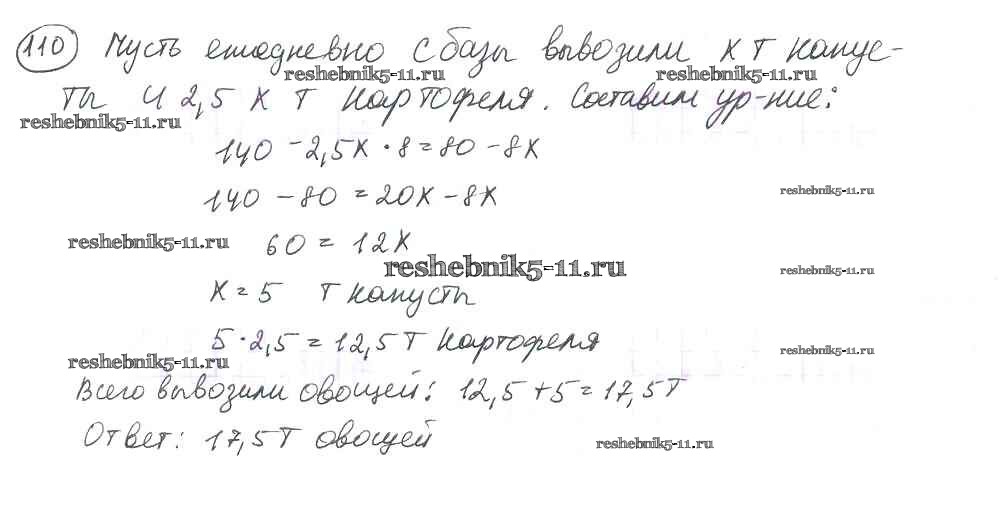 110 Пусть ежедневно с базы вывозили x т капус-
reshebnik5-11.ru reshebnik5-11.ru
ты и 2,5 x т картофеля. Составим ур-ние:
reshebnik5-11.ru
140 - 2,5x · 8 = 80 - 8x
140 - 80 = 20x - 8x
reshebnik5-11.ru
60 = 12x
reshebnik5-11.ru
reshebnik5-11.ru
reshebnik5-11.ru
x = 5 т капусты
5 · 2,5 = 12,5 т картофеля
reshebnik5-11.ru
reshebnik5-11.ru
Всего вывозили овощей: 12,5 + 5 = 17,5 т
Ответ: 17,5 т овощей
reshebnik5-11.ru